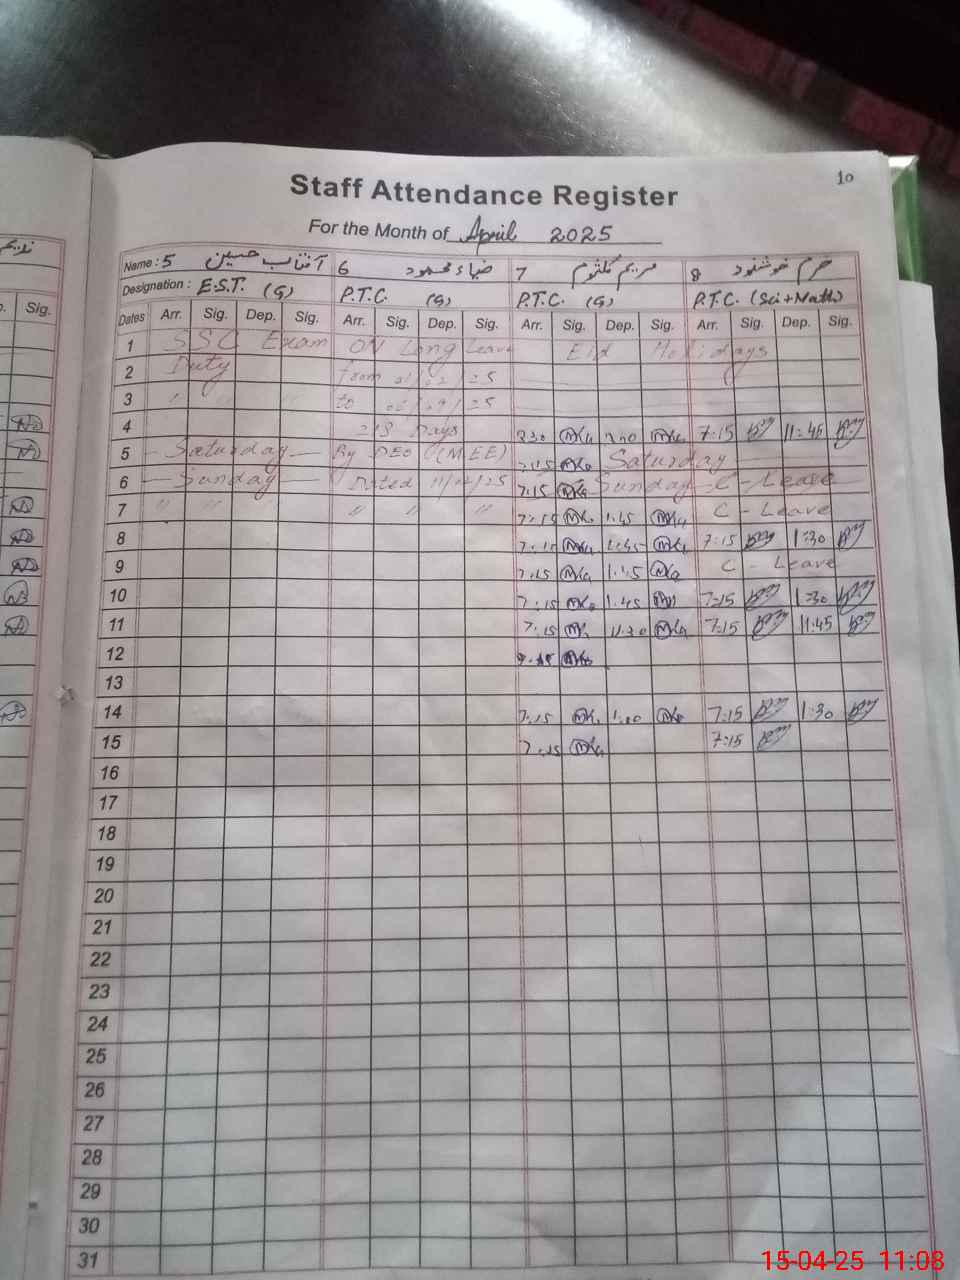 10
Staff Attendance Register
For the Month of April 2025
ندیم
Name : 5 آفتاب حسین 6 ضیاء محمود 7 مریم کلثوم 8 خرم خوشنود
Designation : E.S.T. (G) P.T.C. (G) P.T.C. (G) P.T.C. (Sci + Math)
Sig.
Dates Arr. Sig. Dep. Sig. Arr. Sig. Dep. Sig. Arr. Sig. Dep. Sig. Arr. Sig. Dep. Sig.
1 SSC Exam ON Long Leave Eid Holidays
2 Duty from 01/02/25
3 " " " to 06/09/25
4 218 Days 7:15 11:45
5 Saturday By DEO (MEE) 7:15 Saturday
6 Sunday Dated 11/02/25 7:15 Sunday C-Leave
7 " " " " " " 7:15 1:45 C-Leave
8 7:15 1:45 7:15 1:30
9 7:15 1:45 C-Leave
10 7:15 1.45 7:15 1:30
11 7:15 11:30 7:15 11:45
12
13
14 7:15 1:00 7:15 1:30
15 7:15 7:15
16
17
18
19
20
21
22
23
24
25
26
27
28
29
30
31
15-04-25 11:08